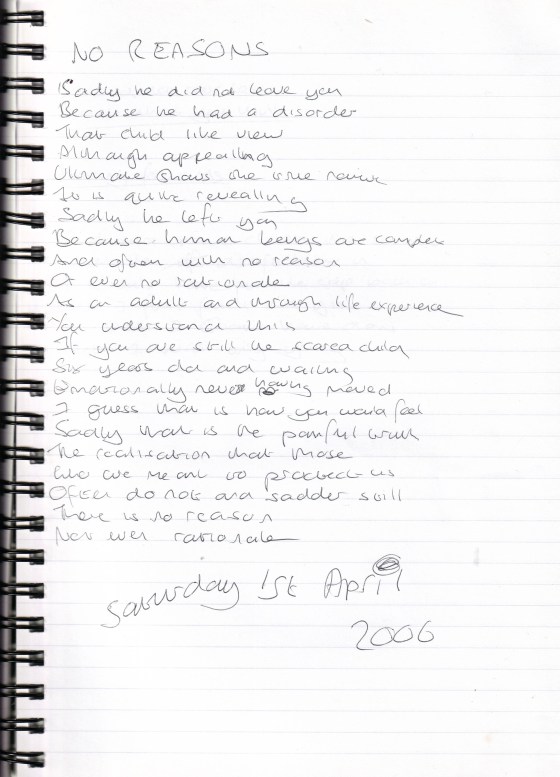 NO REASONS
Sadly he did not leave you
Because he had a disorder
That child like view
Although appealing
Ultimate shows the true
It is quite revealing
Sadly he left you
Because human beings are complex
And often with no reason
Or even no rationale
As an adult and through life experience
You understand this
If you are still the scared child
Six years old and waiting
Emotionally never having moved
I guess that is how you would feel
Sadly that is the painful truth
The realisation that those
Who are meant to protect us
Often do not and sadder still
There is no reason
Nor even rationale
Saturday 1st April
2006